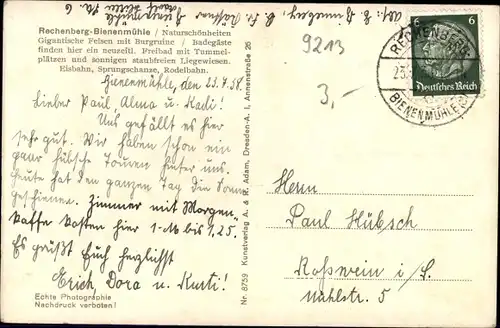 Rechenberg-Bienenmühle / Naturschönheiten
Gigantische Felsen mit Burgruine / Badegäste
finden hier ein neuzeitl. Freibad mit Tummel-
plätzen und sonnigen staubfreien Liegewiesen.
Eisbahn, Sprungschanze, Rodelbahn.
Bienenmühle, den 23.7.38.
Lieber Paul, Alma u. Rudi!
Uns gefällt es hier
sehr gut. Wir haben schon ein
paar hübsche Touren hinter uns.
Heute hat den ganzen Tag die Sonne
geschienen. Zimmer mit Morgen-
kaffe kosten hier 1.-M bis 1,25.
Es grüßt Euch herzlichst
Erich, Dora u. Kurti!
Echte Photographie
Nachdruck verboten!
Nr. 8759 Kunstverlag A. & R. Adam, Dresden-A. 1, Annenstraße 25
9213
3,-
RECHENBERG
BIENENMÜHLE
6 6
Deutsches Reich
Herrn
Paul Hübsch
Roßwein i/S.
Mühlstr. 5